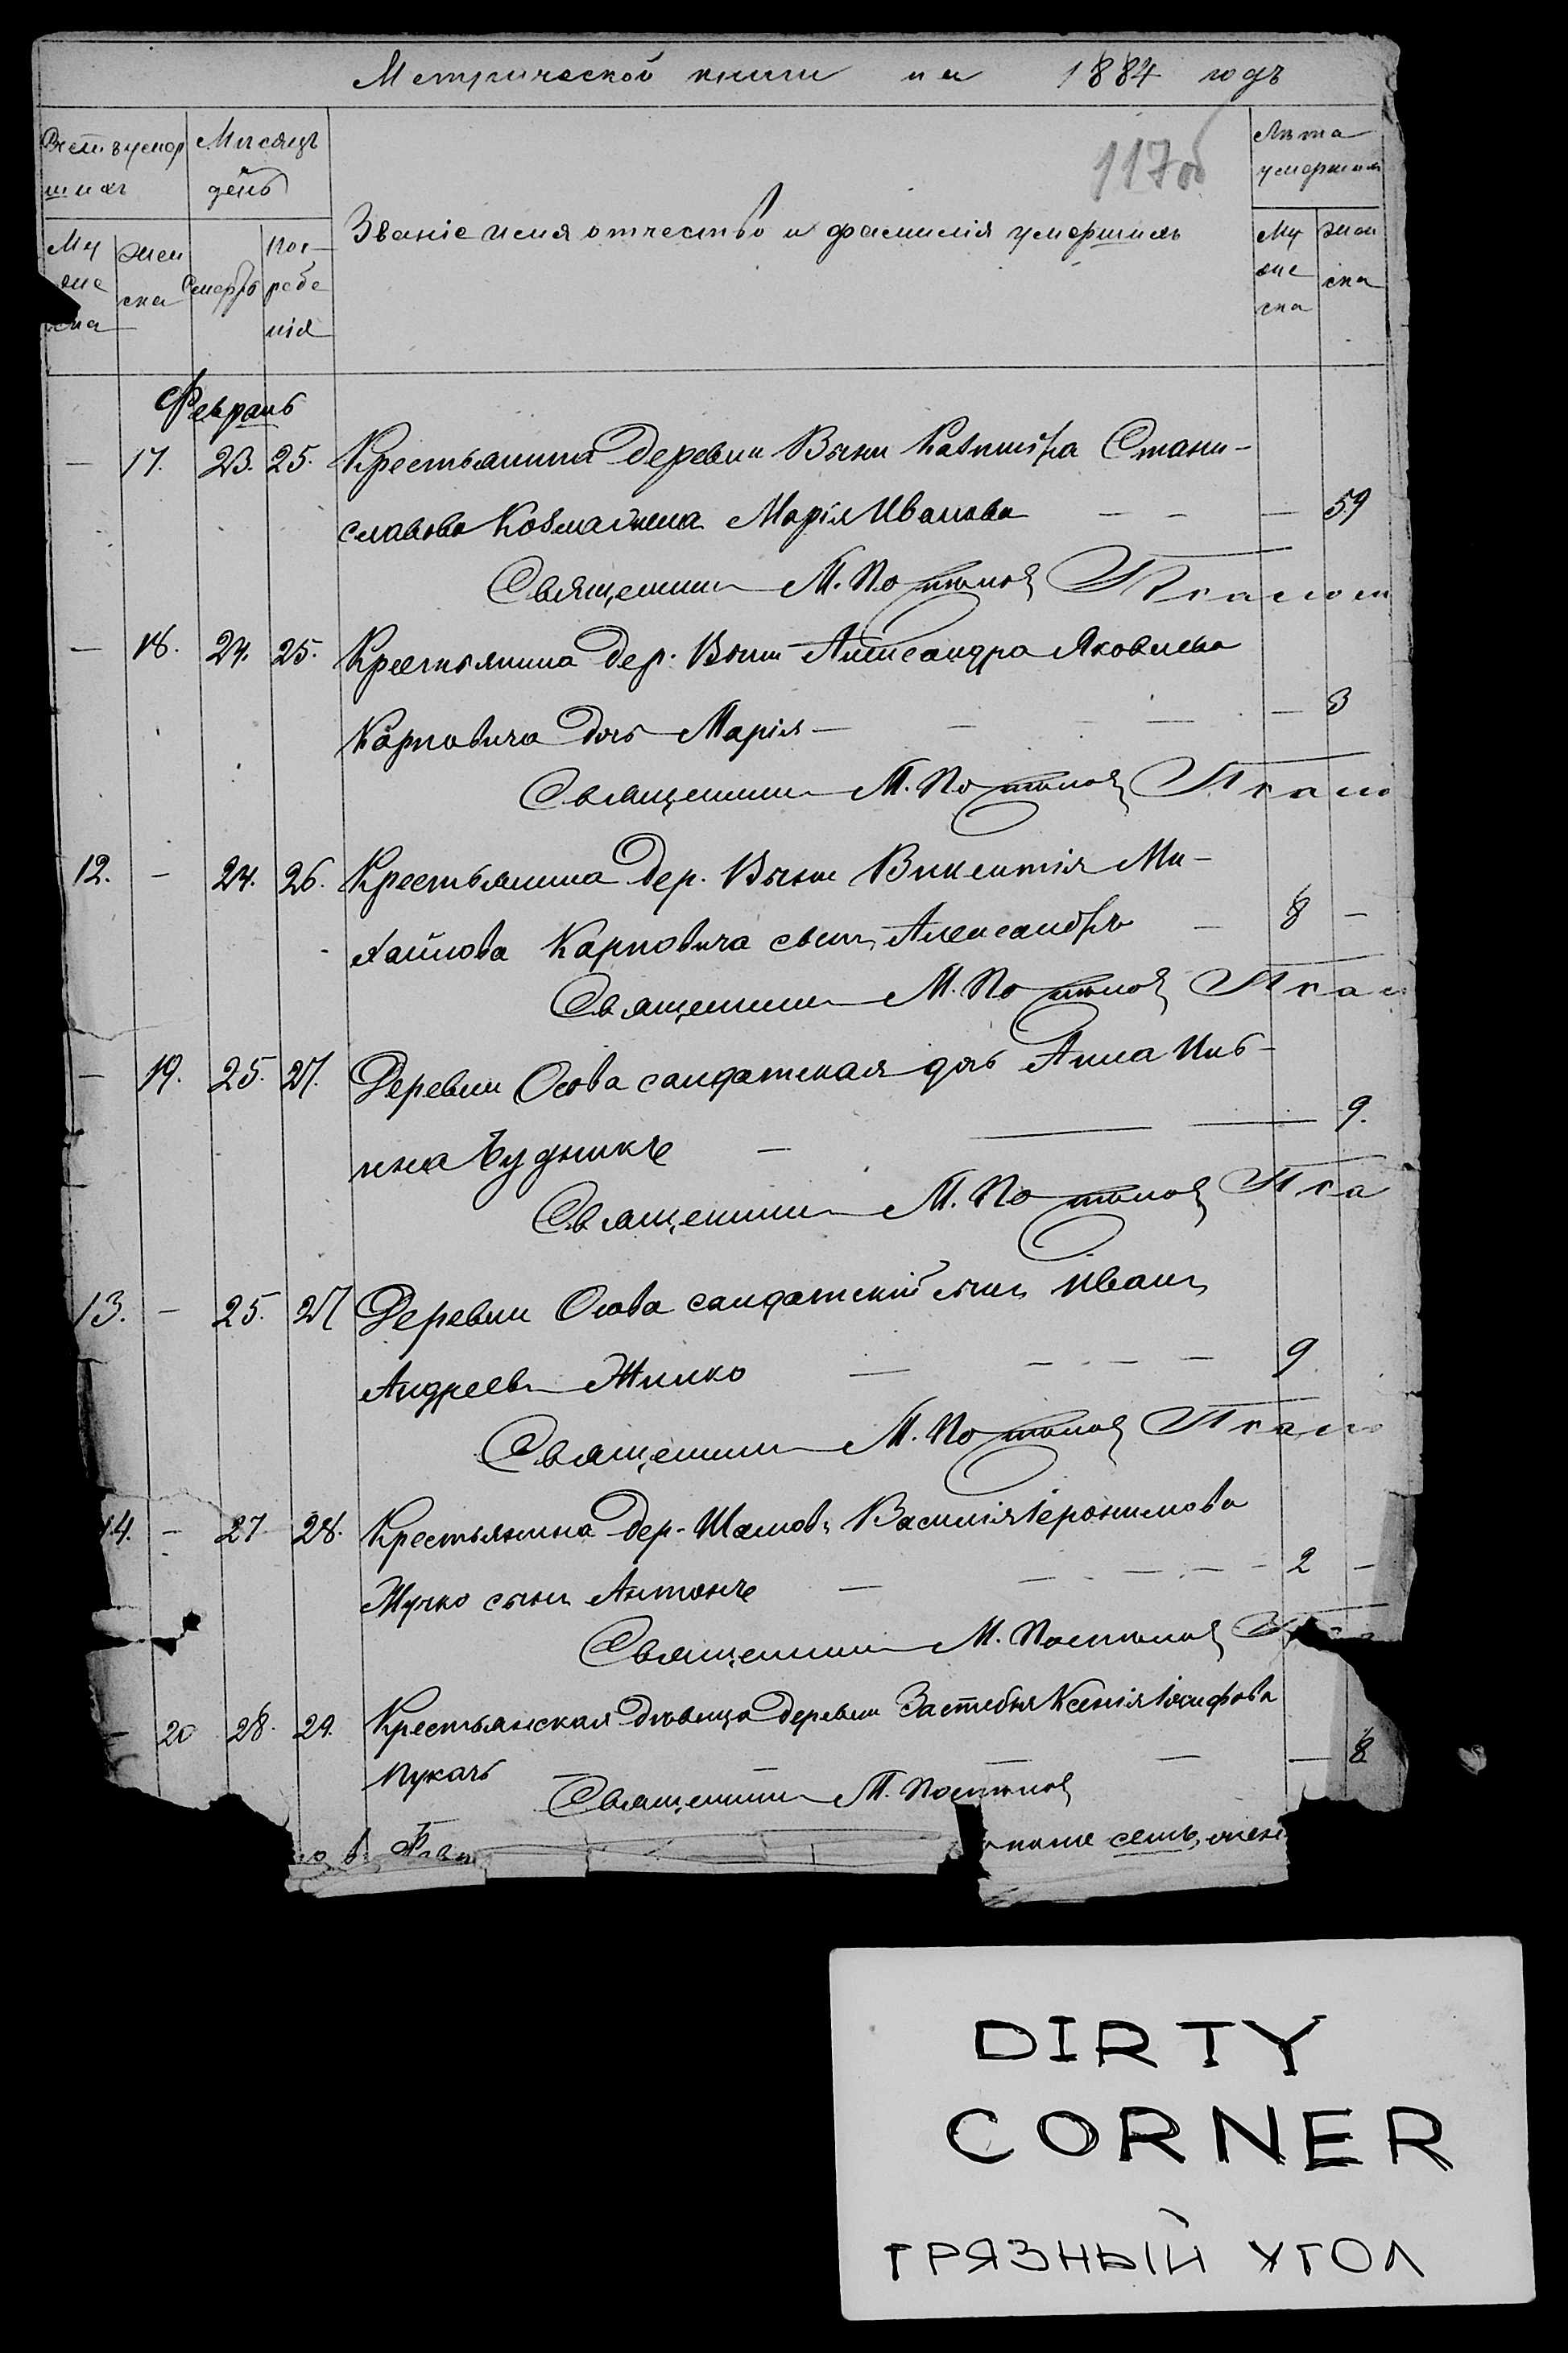 Метрической книги на 1884 годъ
117 об
Счетъ умер Месяцъ
шихъ день
Званіе имя отчество и фамилія умершихъ
Лѣта
умершихъ
Му жен Смерть пог
же ска ребе
ска нія
Му жен
же ска
ска
Февраль
— 17. 23. 25. Крестьянина деревни Выни Казиміра Стани-
славова жена Марія Иванова — — — 59
Священникъ М.
— 18. 24. 25. Крестьянина дер. Выни Александра Яковлева
Карповича дочь Марія — — — — — 3
Священникъ М.
12. — 24. 26. Крестьянина дер. Выни Викентія Ми-
хайлова Карповича сынъ Александръ — 8 —
Священникъ М.
— 19. 25. 27. Деревни Осова солдатская дочь Анна Иль-
ина Будникъ — — — 9.
Священникъ М.
13. — 25. 27 Деревни Осова солдатскій сынъ Иванъ
Андреевъ Жилко — — — — 9
Священникъ М.
14. — 27 28. Крестьянина дер. Василія Іеронимова
Жучко сынъ Антонъ — — — — — 2 —
Священникъ М.
— 20 28. 29. Крестьянская дѣвица деревни Ксенія Іосифова
Пукачъ — — — — — 8
Священникъ М.
в семь,
DIRTY
CORNER
ГРЯЗНЫЙ УГОЛ